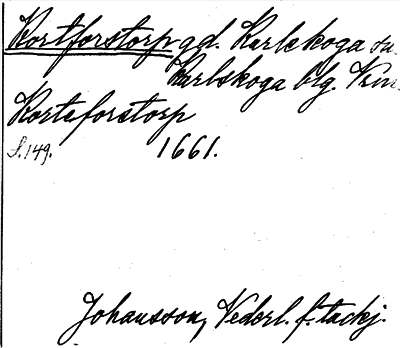 Kortforstorp gd. Karlskoga sn.
Karlskoga blg. Vrm.
Korteforstorp
S. 149. 1661.
Johansson, Vedorl. f. tackj.